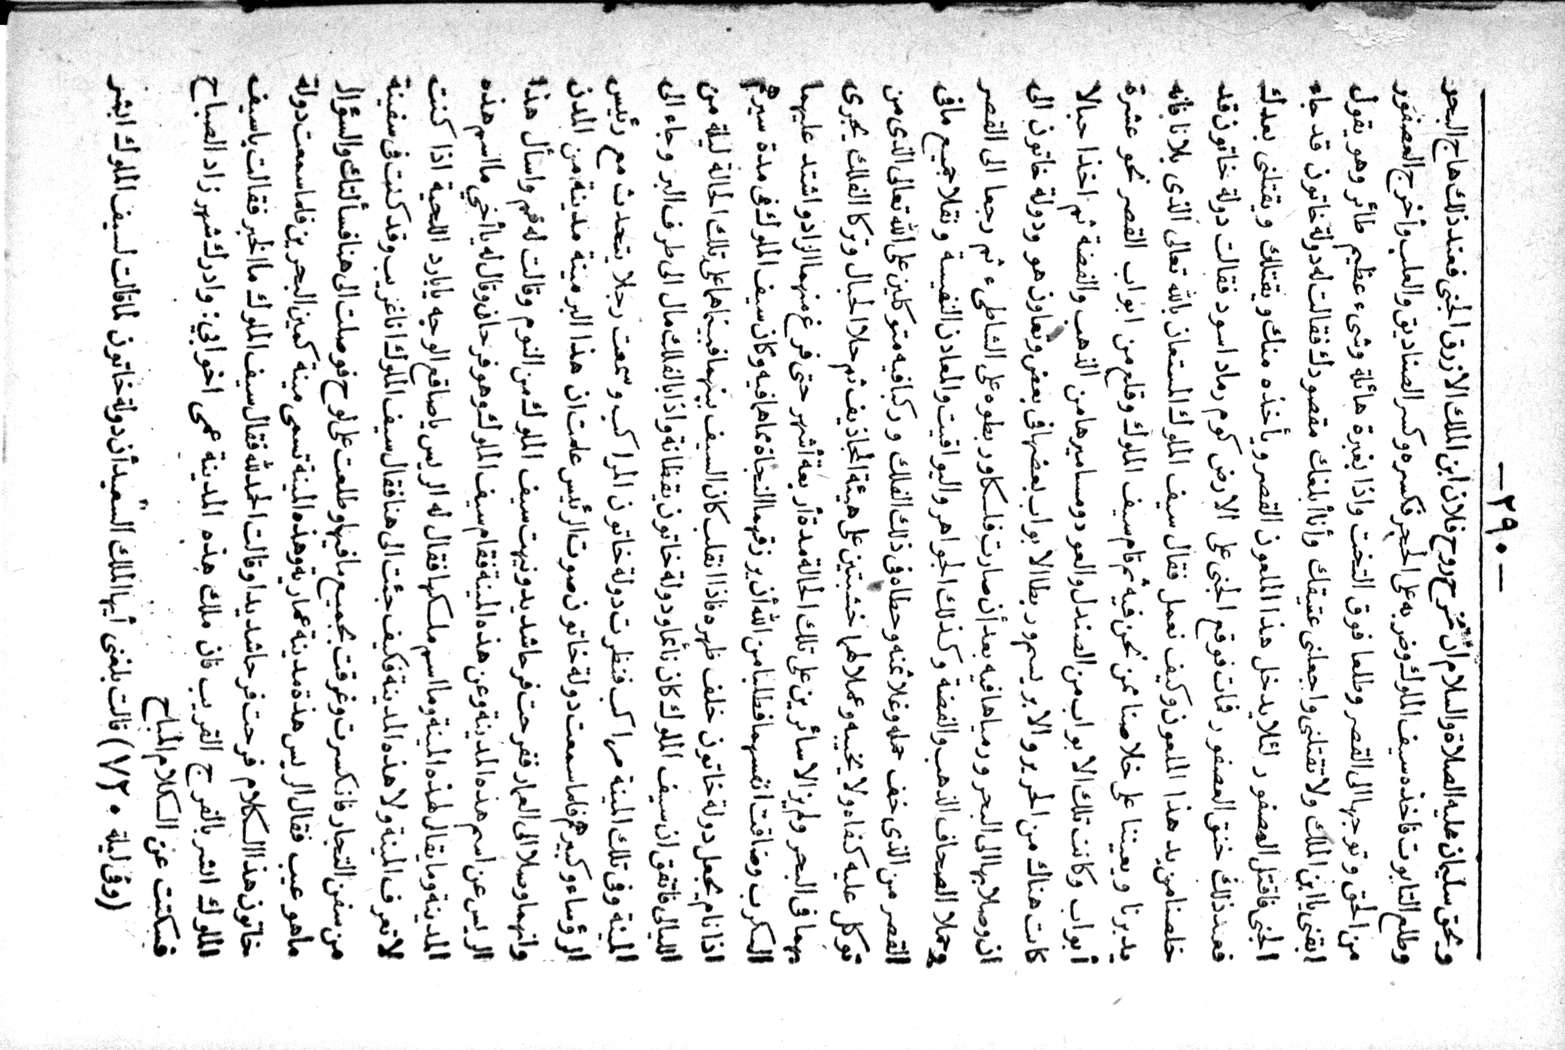 — ٢٩٠ —
وبحق سليمان عليه الصلاة والسلام ان تخرج روح فلان ابن الملك الازرق الجنى فعند ذلك هاج البحر
وطلع التابوت فاخذه سيف الملوك وضربه على الحجر فكسره وكسر الصناديق والعلب وأخرج العصفور
من الحق وتوجها الى القصر وطلعا فوق التخت واذا بغبرة هائلة وشىء عظيم طائر وهو يقول
ابقنى يا ابن الملك ولا تقتلنى واجعلنى عتيقك وأنا أبلغك مقصودك فقالت له دولة خاتون قد جاء
الجنى فاقتل العصفور لئلا يدخل هذا الملعون القصر ويأخذه منك ويقتلك ويقتلنى بعدك
فعند ذلك خنق العصفور فمات فوقع الجنى على الارض كوم رماد اسود فقالت دولة خاتون قد
خلصنا من يد هذا الملعون وكيف نعمل فقال سيف الملوك المستعان بالله تعالى الذى بلانا فانه
يدبرنا ويعيننا على خلاصنا مما نحن فيه ثم قام سيف الملوك وقلع من ابواب القصر نحو عشرة
أبواب وكانت تلك الابواب من الصندل والعود ومساميرها من الذهب والفضة ثم اخذا حبالا
كانت هناك من الحرير والابريسم وربطا الابواب بعضها فى بعض وتعاون هو ودولة خاتون الى
ان وصلا بها الى البحر ورمياها فيه بعد أن صارت فلكا وربطوه على الشاطىء ثم رجعا الى القصر
وحملا الصحاف الذهب والفضة وكذلك الجواهر واليواقيت والمعادن النفيسة ونقلا جميع ما فى
القصر من الذى خف حمله وغلا ثمنه وحطاه فى ذلك الفلك وركبا فيه متوكلين على الله تعالى الذى من
توكل عليه كفاه ولا يخيبه وعملا لهما خشبتين على هيئة المجاذيف ثم حلا الحبال وتركا الفلك يجرى
بهما فى البحر ولم يزالا سائرين على تلك الحالة مدة أربعة أشهر حتى فرغ منهما الزاد واشتد عليهما
الكرب وضاقت انفسهما فطلبا من الله أن يرزقهما النجاة مما هما فيه وكان سيف الملوك فى مدة سيرهم
اذا نام يجعل دولة خاتون خلف ظهره فاذا انقلب كان السيف بينهما فبينما هما على تلك الحالة ليلة من
الليالى فاتفق ان سيف الملوك كان نائما ودولة خاتون يقظانة واذا بالفلك مال الى طرف البر وجاء الى
المينة وفى تلك المينة مراكب فنظرت دولة خاتون المراكب وسمعت رجلا يتحدث مع رئيس
الرؤساء وكبيرهم فلما سمعت دولة خاتون صوت الرئيس علمت ان هذا البر مينة مدينة من المدن
وانهما وصلا الى العمار ففرحت فرحا شديدا ونبهت سيف الملوك من النوم وقالت له قم واسأل هذا
الريس عن اسم هذه المدينة وعن هذه المينة فقام سيف الملوك وهو فرحان وقال له يا أخى ما اسم هذه
المدينة وما يقال لهذه المينة وما اسم ملكها فقال له الريس يا صاقع الوجه يا بارد اللحية اذا كنت
لا تعرف المينة ولا هذه المدينة فكيف جئت الى هنا فقال سيف الملوك انا غريب وقد كنت فى سفينة
من سفن التجار فانكسرت وغرقت بجميع ما فيها وطلعت على لوح فوصلت الى هنا فسألتك والسؤال
ما هو عيب فقال الريس هذة مدينة عمارية وهذه المينة تسمى مينة كمين البحرين فلما سمعت دولة
خاتون هذا الكلام فرحت فرحا شديدا وقالت الحمد لله فقال سيف الملوك ما الخبر فقالت يا سيف
الملوك ابشر بالفرج القريب فان ملك هذه المدينة عمى اخو ابى: وادرك شهرزاد الصباح
فسكتت عن الكلام المباح
(وفى ليلة ٧٢٠) قالت بلغنى أيها الملك السعيد أن دولة خاتون لما قالت لسيف الملوك ابشر